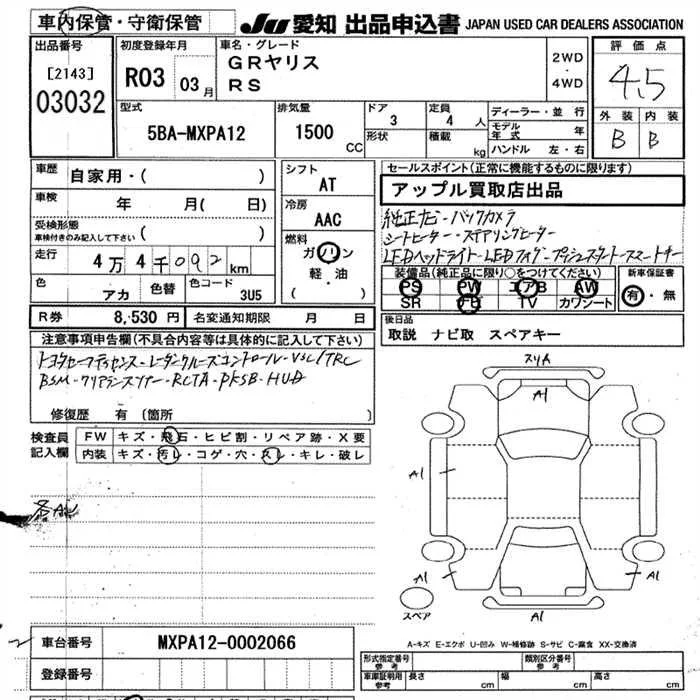 車内保管・守衛保管
JU 愛知 出品申込書 JAPAN USED CAR DEALERS ASSOCIATION
出品番号
[2143]
03032
初度登録年月
R03 03月
車名・グレード
GRヤリス
RS
2WD
・
4WD
評価点
4.5
外装 内装
B B
型式
5BA-MXPA12
排気量
1500 CC
ドア
3
形状
定員
4 人
積載
kg
ディーラー・並行
モデル年式 年
ハンドル 左・右
車歴 自家用・( )
車検 年 月( 日)
受検形態
車検付きのみ記入して下さい ( )
走行 4万4千092km
色 アカ
色替
色コード 3U5
シフト
AT
冷房
AAC
燃料
ガソリン
軽・油
( )
セールスポイント(正常に機能するものに限ります)
アップル買取店出品
純正ナビ・バックカメラ
シートヒーター・ステアリングヒーター
LEDヘッドライト・LEDフォグ・プッシュスタート・スマートキー
装備品(純正品に限り○をつけてください)
PS PW エアB AW
SR TV カワシート
新車保証書
有・無
R券 8,530円
名変通知期限 月 日
後日品
取説 ナビ取 スペアキー
注意事項申告欄(不具合内容等は具体的に記入して下さい)
トヨタセーフティセンス・レーダークルーズコントロール・VSC/TRC
BSM・クリアランスソナー・RCTA・PKSB・HUD
修復歴 有(箇所 )
検査員記入欄
FW キズ・飛石・ヒビ割・リペア跡・X要
内装 キズ・汚レ・コゲ・穴・スレ・キレ・破レ
各A1
スリム
A1
A1
A1
A1
A1
スペア
A-キズ E-エクボ U-凹み W-補修跡 S-サビ C-腐食 XX-交換済
車台番号 MXPA12-0002066
登録番号
形式指定番号 参考
類別区分番号 参考
車庫証明用 参考
長さ cm
幅 cm
高さ cm